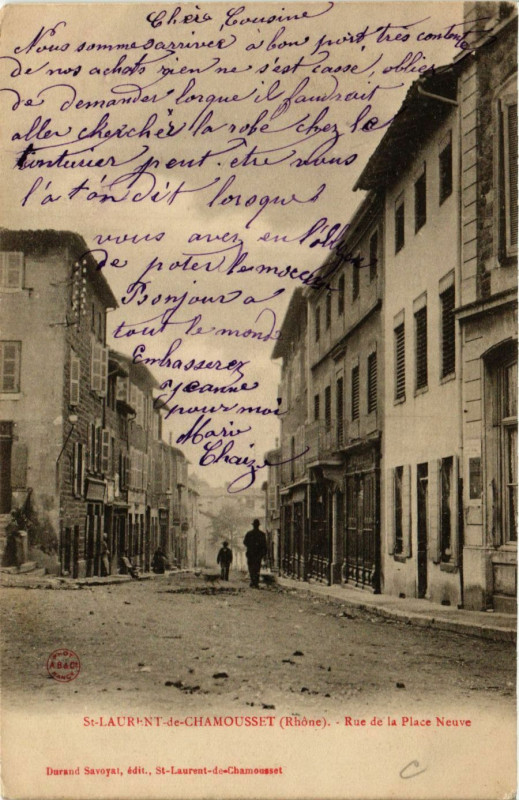 Chère Cousine
Nous sommes arrivée à bon port très contente
de nos achats rien ne s'est cassé, obliez
de demander lorque il faudrait
aller chercher la robe chez le
tinturier peut-être vous
l'a t'on dit lorsque
vous avez eu l'obligence
de poter le
Bonjour a
tout le monde
Embrasserez
Jeanne
pour moi
Marie
Chaize
St-LAURENT-de-CHAMOUSSET (Rhône). - Rue de la Place Neuve
Durand Savoyat, édit., St-Laurent-de-Chamousset
C